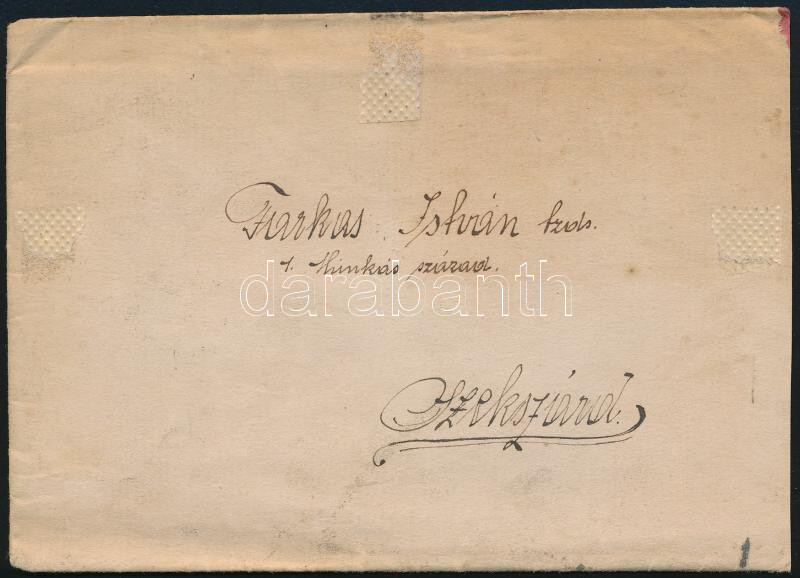 Farkas István tzds.
1. Munkás század.
darabanth
Szekszárd.
1